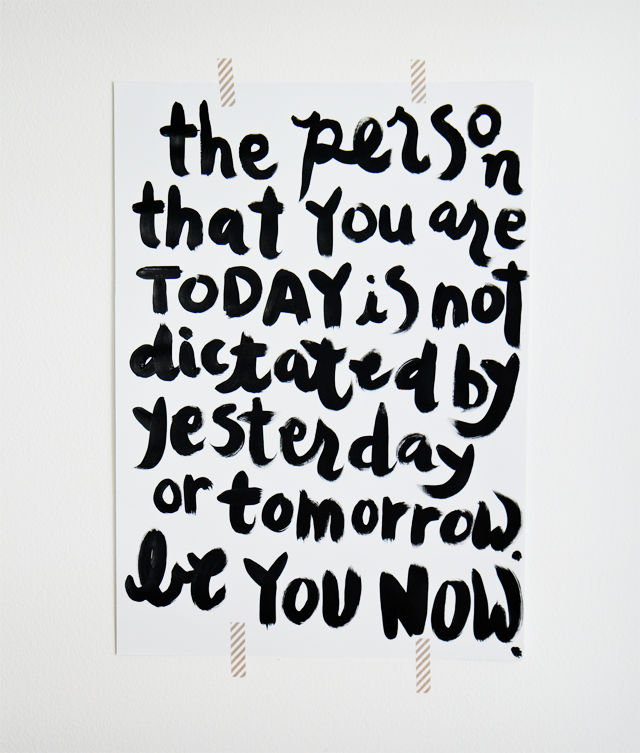 the person
that You are
TODAY is not
dictated by
yesterday
or tomorrow.
be YOU NOW.